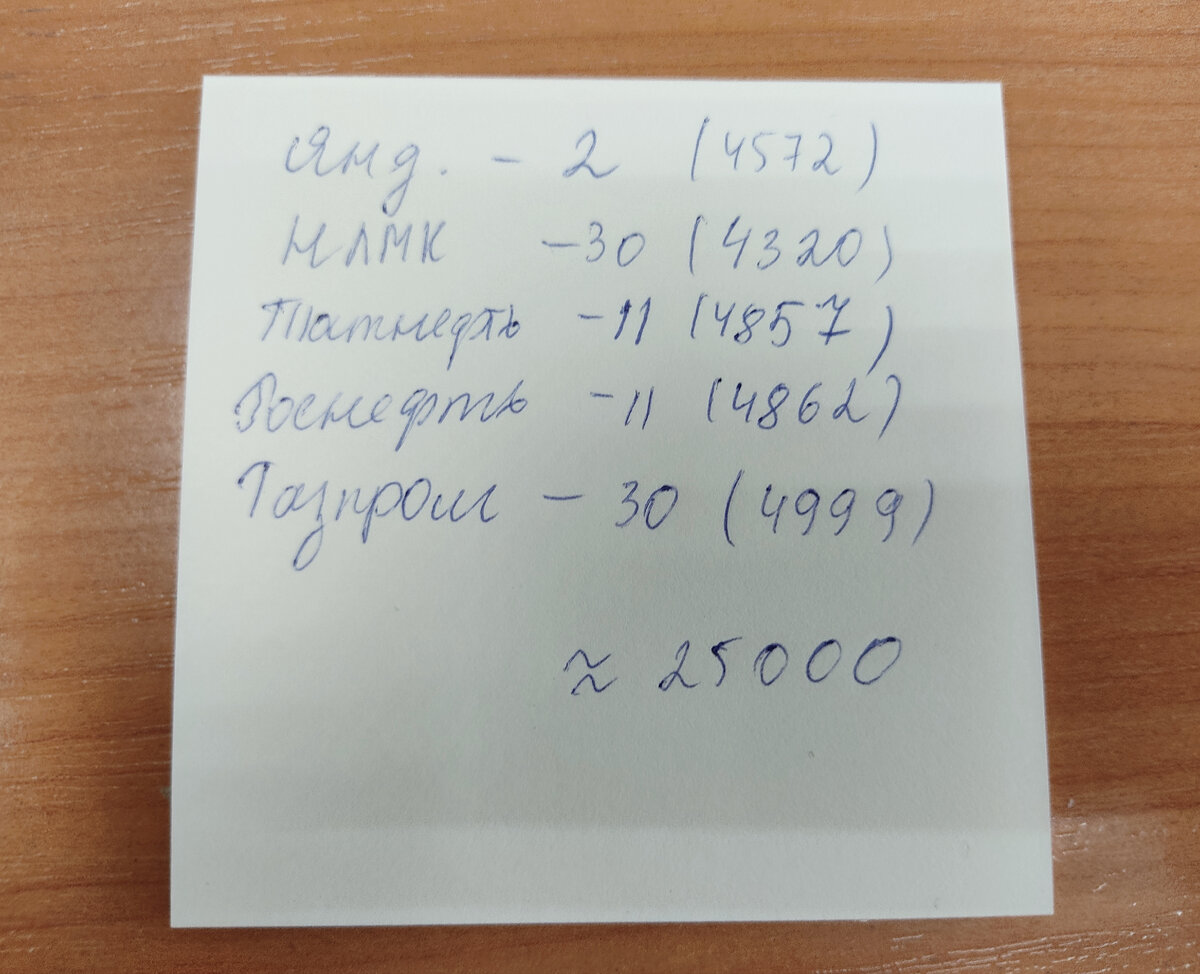 Янд. - 2 (4572)
НЛМК - 30 (4320)
Татнефть - 11 (4857)
Роснефть - 11 (4862)
Газпром - 30 (4999)
≈ 25000